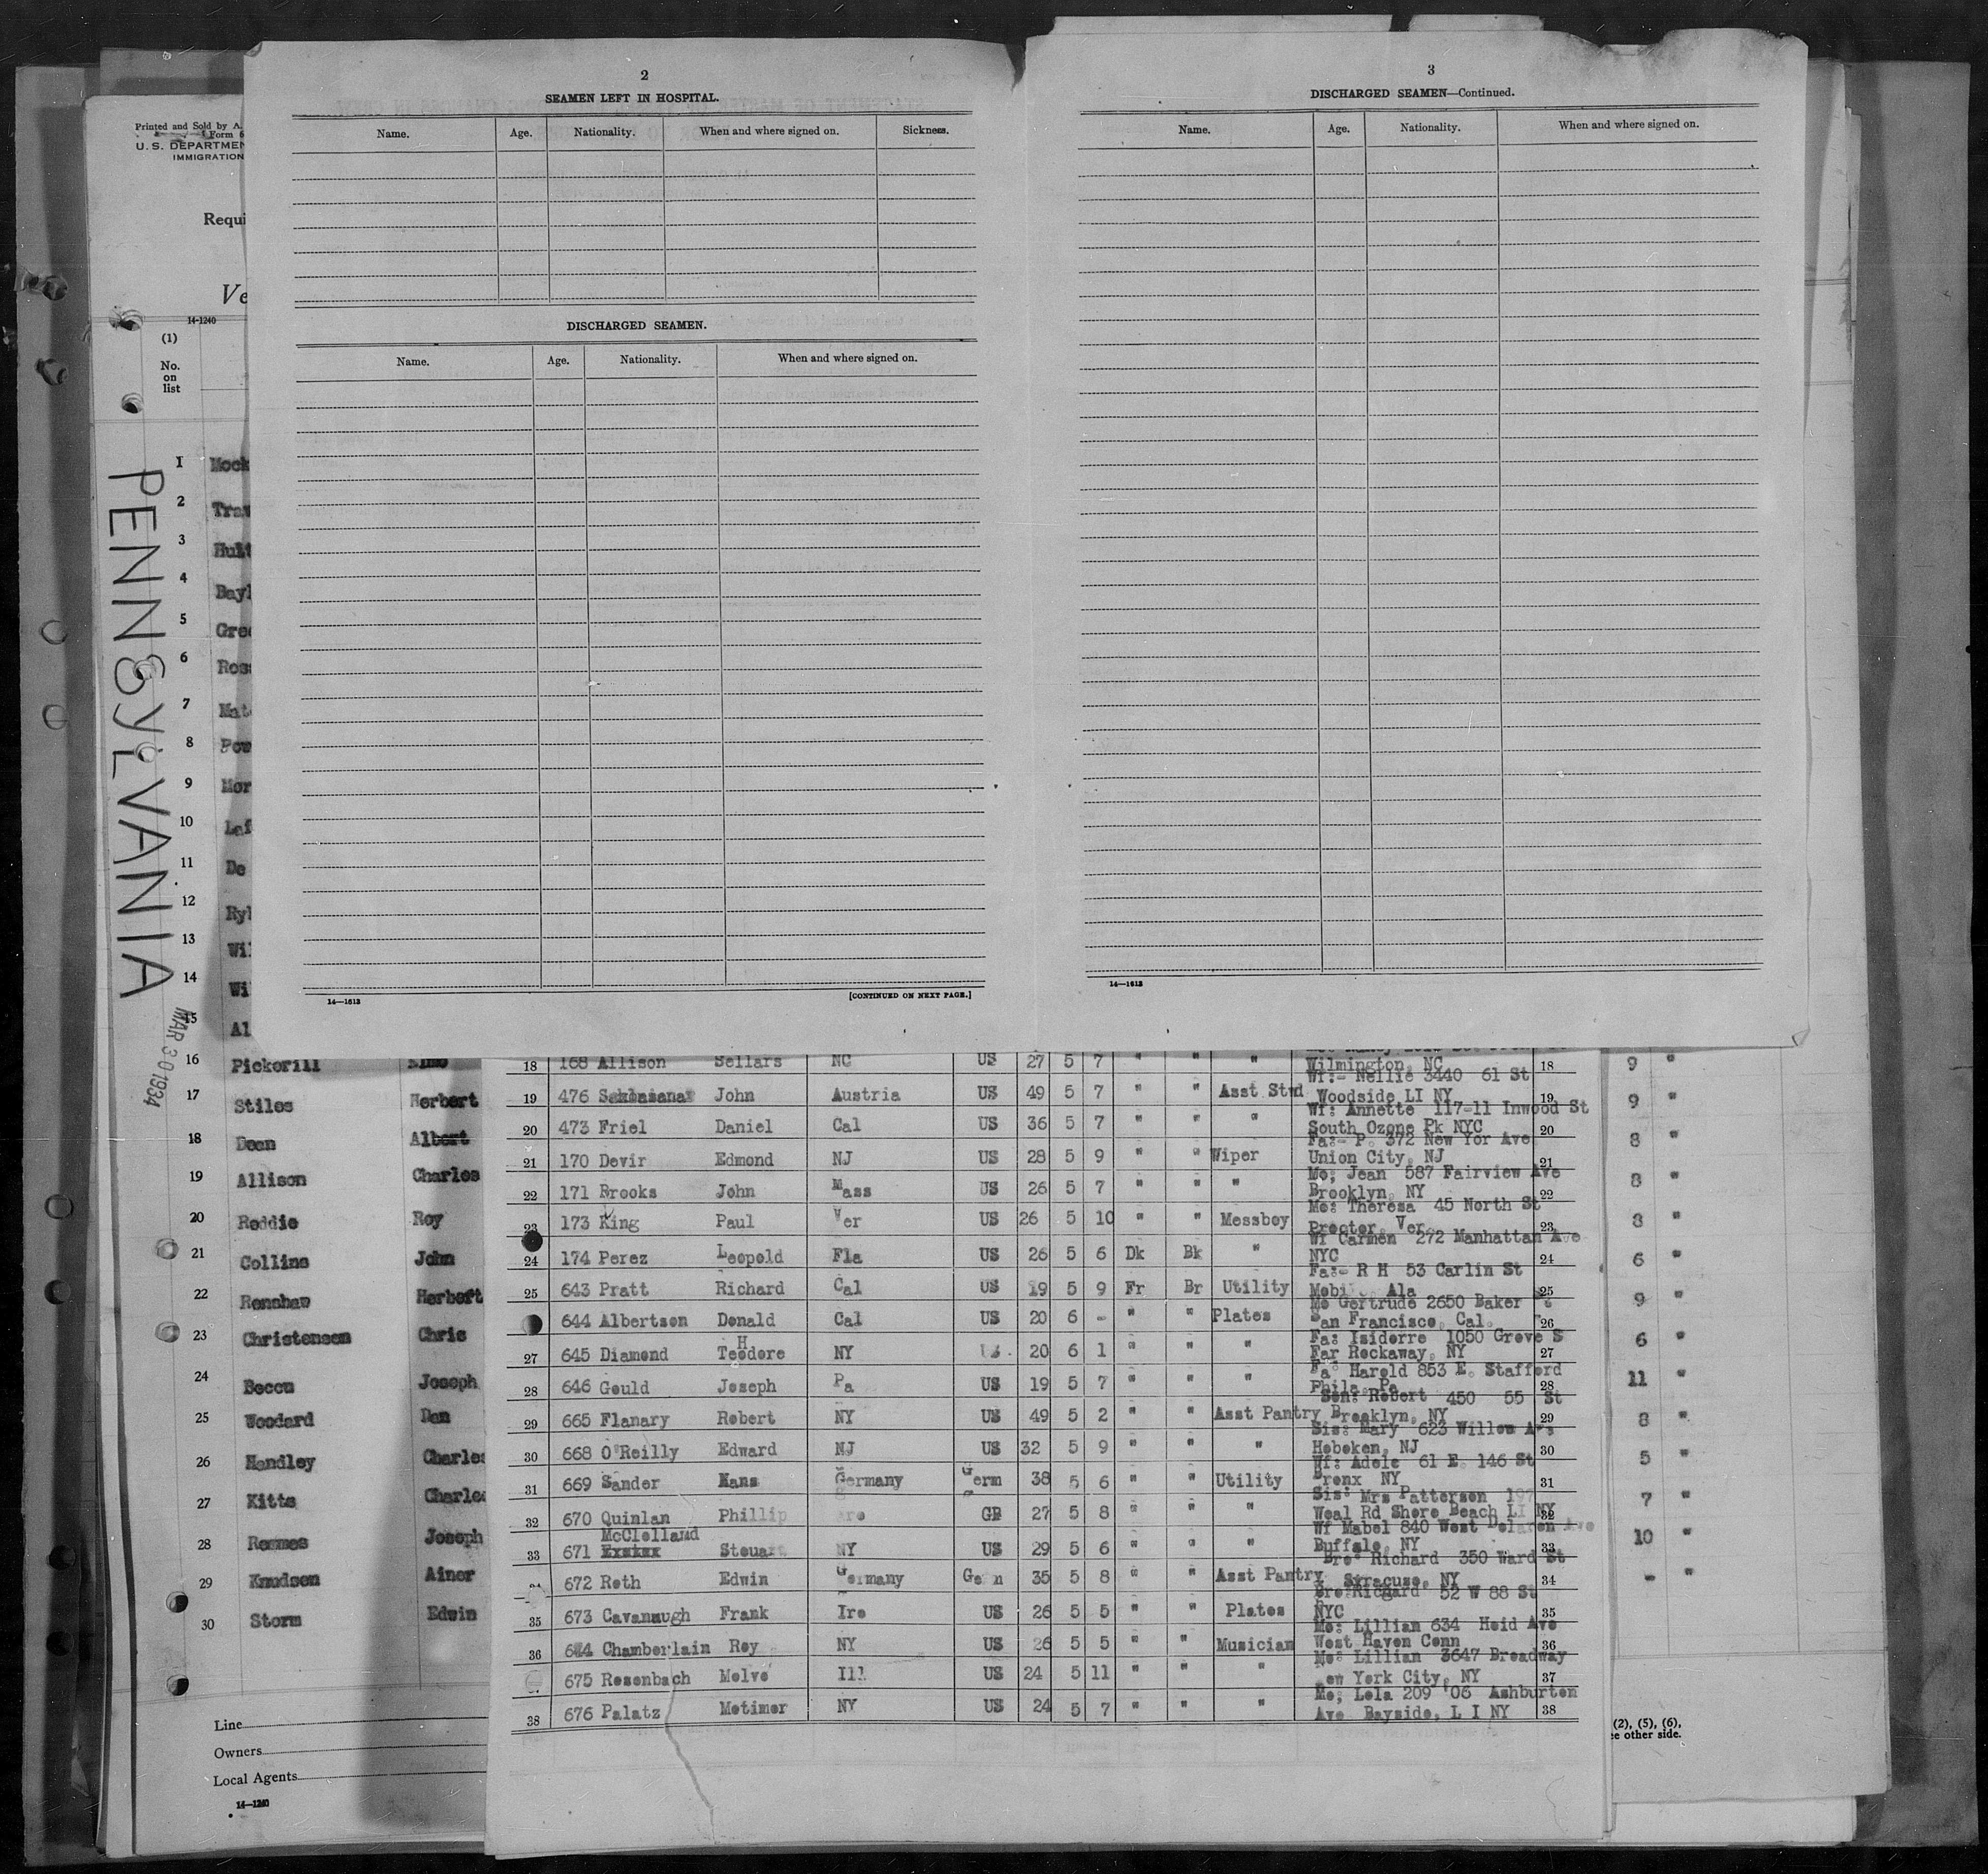 2
SEAMEN LEFT IN HOSPITAL.
Name. Age. Nationality. When and where signed on. Sickness.
DISCHARGED SEAMEN.
Name. Age. Nationality. When and where signed on.
14—1613 [CONTINUED ON NEXT PAGE.]
3
DISCHARGED SEAMEN—Continued.
Name. Age. Nationality. When and where signed on.
14—1613
Printed and Sold by A.
Form 6
U. S. DEPARTMEN
IMMIGRATION
Requi
Ve
14-1240
(1)
No.
on
list
PENNSYLVANIA
MAR 30 1934
1 Mock
2 Trav
3 Hult
4 Bayl
5 Gree
6 Ross
7 Mat
8 Pow
9 Mor
10 Laf
11 De
12 Ryl
13 Wil
14 Wi
15 Al
16 Pickerill Elmo 9 "
17 Stiles Herbert 9 "
18 Dean Albert 8 "
19 Allison Charles 8 "
20 Reddie Roy 8 "
21 Collins John 6 "
22 Renshaw Herbert 9 "
23 Christensen Chris 6 "
24 Beccu Joseph 11 "
25 Woodard Dan 8 "
26 Handley Charles 5 "
27 Kitts Charles 7 "
28 Remmes Joseph 10 "
29 Knudsen Ainer - "
30 Storm Edwin
Line
Owners
Local Agents
14—1240
18 168 Allison Sellars NC US 27 5 7 " " " Wilmington, NC 18
Wf:- Nellie 3440 61 St
19 476 John Austria US 49 5 7 " " Asst Stwd Woodside LI NY 19
Wf: Annette 117-11 Inwood St
20 473 Friel Daniel Cal US 36 5 7 " " " South Ozone Pk NYC 20
Fa:- P. 372 New Yor Ave
21 170 Devir Edmond NJ US 28 5 9 " " Wiper Union City, NJ 21
Mo; Jean 587 Fairview Ave
22 171 Brooks John Mass US 26 5 7 " " " Brooklyn, NY 22
Mo: Theresa 45 North St
23 173 King Paul Ver US 26 5 10 " " Messboy Procter, Ver. 23
Wf Carmen 272 Manhattan Ave
24 174 Perez Leopold Fla US 26 5 6 Dk Bk " NYC 24
Fa:- R H 53 Carlin St
25 643 Pratt Richard Cal US 19 5 9 Fr Br Utility Mobi Ala 25
Mo Gertrude 2650 Baker St
644 Albertson Donald Cal US 20 6 - " " Plates San Francisco, Cal. 26
Fa: Isidorre 1050 Grove S
H
27 645 Diamond Teodore NY US. 20 6 1 " " " Far Rockaway, NY 27
Fa: Harold 853 E. Stafford
28 646 Gould Joseph Pa US 19 5 7 " " " Phila, Pa 28
Son: Robert 450 55 St
29 665 Flanary Robert NY US 49 5 2 " " Asst Pantry Brooklyn, NY 29
Sis: Mary 623 Willow Av
30 668 O'Reilly Edward NJ US 32 5 9 " " " Hoboken, NJ 30
Wf: Adele 61 E. 146 St
31 669 Sander Hans Germany Germ 38 5 6 " " Utility Bronx NY 31
Sis: Mrs Patterson 197
32 670 Quinlan Phillip Ire GB 27 5 8 " " " Weal Rd Shore Beach LI NY 32
McClelland Wf Mabel 840 West Ave
33 671 Steuart NY US 29 5 6 " " " Buffalo, NY 33
Bro: Richard 350 Ward St
672 Roth Edwin Germany Ge n 35 5 8 " " Asst Pantry Syracuse, NY 34
Bro:Richard 52 W 88 St
35 673 Cavanaugh Frank Ire US 26 5 5 " " Plates NYC 35
Mo: Lillian 634 Heid Ave
36 644 Chamberlain Roy NY US 26 5 5 " " Musician West Haven Conn 36
Mo: Lillian 3647 Broadway
675 Rosenbach Melve Ill US 24 5 11 " " " New York City, NY 37
Mo; Lela 209 06 Ashburton
38 676 Palatz Motimer NY US 24 5 7 " " " Ave Bayside, L I NY 38
(2), (5), (6),
ee other side.